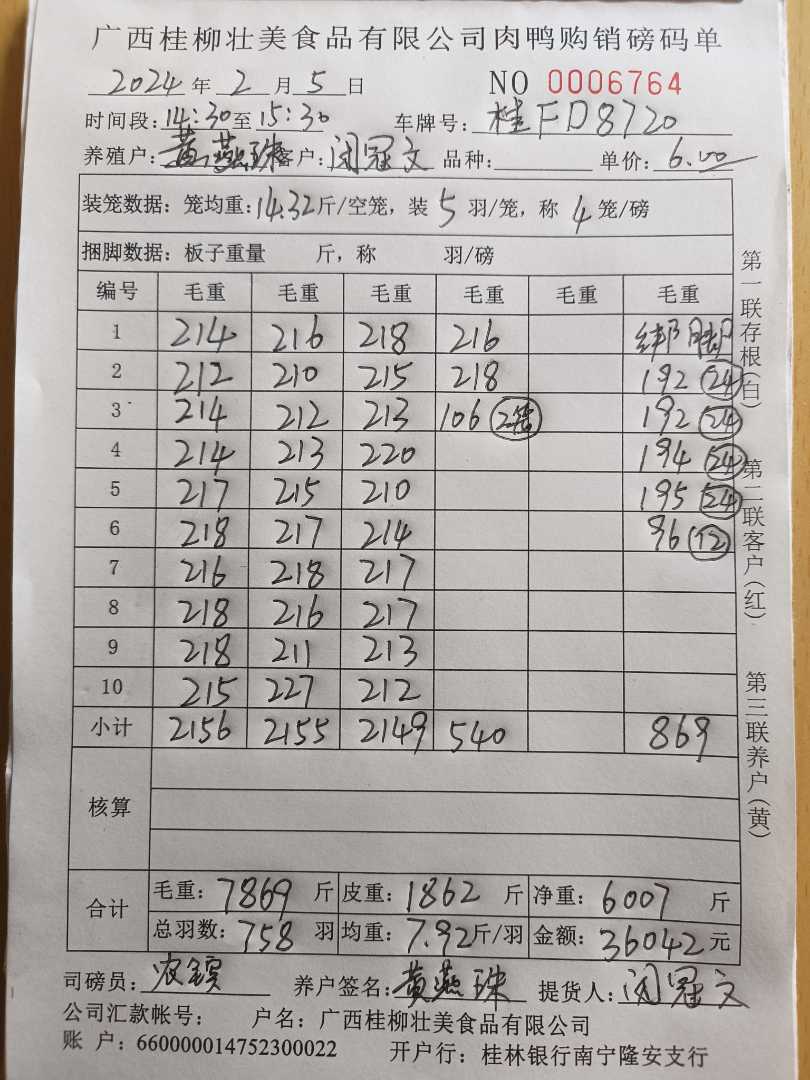 广西桂柳壮美食品有限公司肉鸭购销磅码单
2024年2月5日 NO 0006764
时间段:14:30至15:30 车牌号:桂FD8720
养殖户:黄燕珠 客户:闭冠文 品种: 单价:6.00
装笼数据:笼均重:14.32斤/空笼,装5羽/笼,称4笼/磅
捆脚数据:板子重量 斤,称 羽/磅
编号 毛重 毛重 毛重 毛重 毛重 毛重
1 214 216 218 216 绑脚
2 212 210 215 218 192 24
3 214 212 213 106 2笼 192 24
4 214 213 220 194 24
5 217 215 210 195 24
6 218 217 214 96 12
7 216 218 217
8 218 216 217
9 218 211 213
10 215 227 212
小计 2156 2155 2149 540 869
核算
合计 毛重:7869斤 皮重:1862斤 净重:6007斤
总羽数:758羽 均重:7.92斤/羽 金额:36042元
司磅员:农 养户签名:黄燕珠 提货人:闭冠文
公司汇款帐号: 户名:广西桂柳壮美食品有限公司
账 户:660000014752300022 开户行:桂林银行南宁隆安支行
第一联存根(白) 第二联客户(红) 第三联养户(黄)